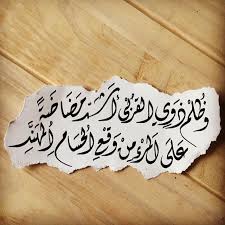 وظلم ذوي القربى أشد مضاضةً
على المرء من وقع الحسام المهنّد